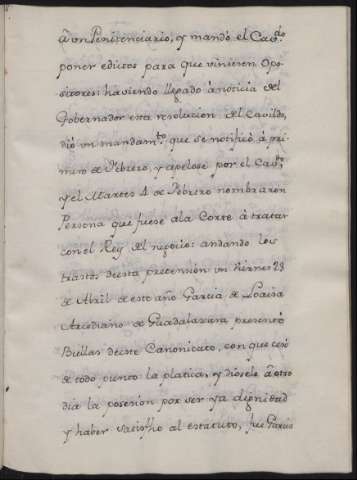 â un Penitenciario, y mandó el Cav.do
poner edictos para que viniesen Opo-
sitores: haviendo llegado à noticia del
Gobernador esta resolucion del Cavildo,
dió un mandam.to que se notificò à pri-
mero de Febrero, y apelose por el Cav.do
y el Martes 4 de Febrero nombraron
Persona que fuese ala Corte à tratar
con el Rey del negocio: andando los
trastos desta pretension un Viernes 28
de Abril de este año Garcia de Loaisa
Arcediano de Guadalaxara presentò
Bullas deeste Canonicato, con que cesò
de todo punto la platica, y diosele â otro
dia la posesion por ser ya dignidad
y haber satisfho al estatuto, fue Garcia